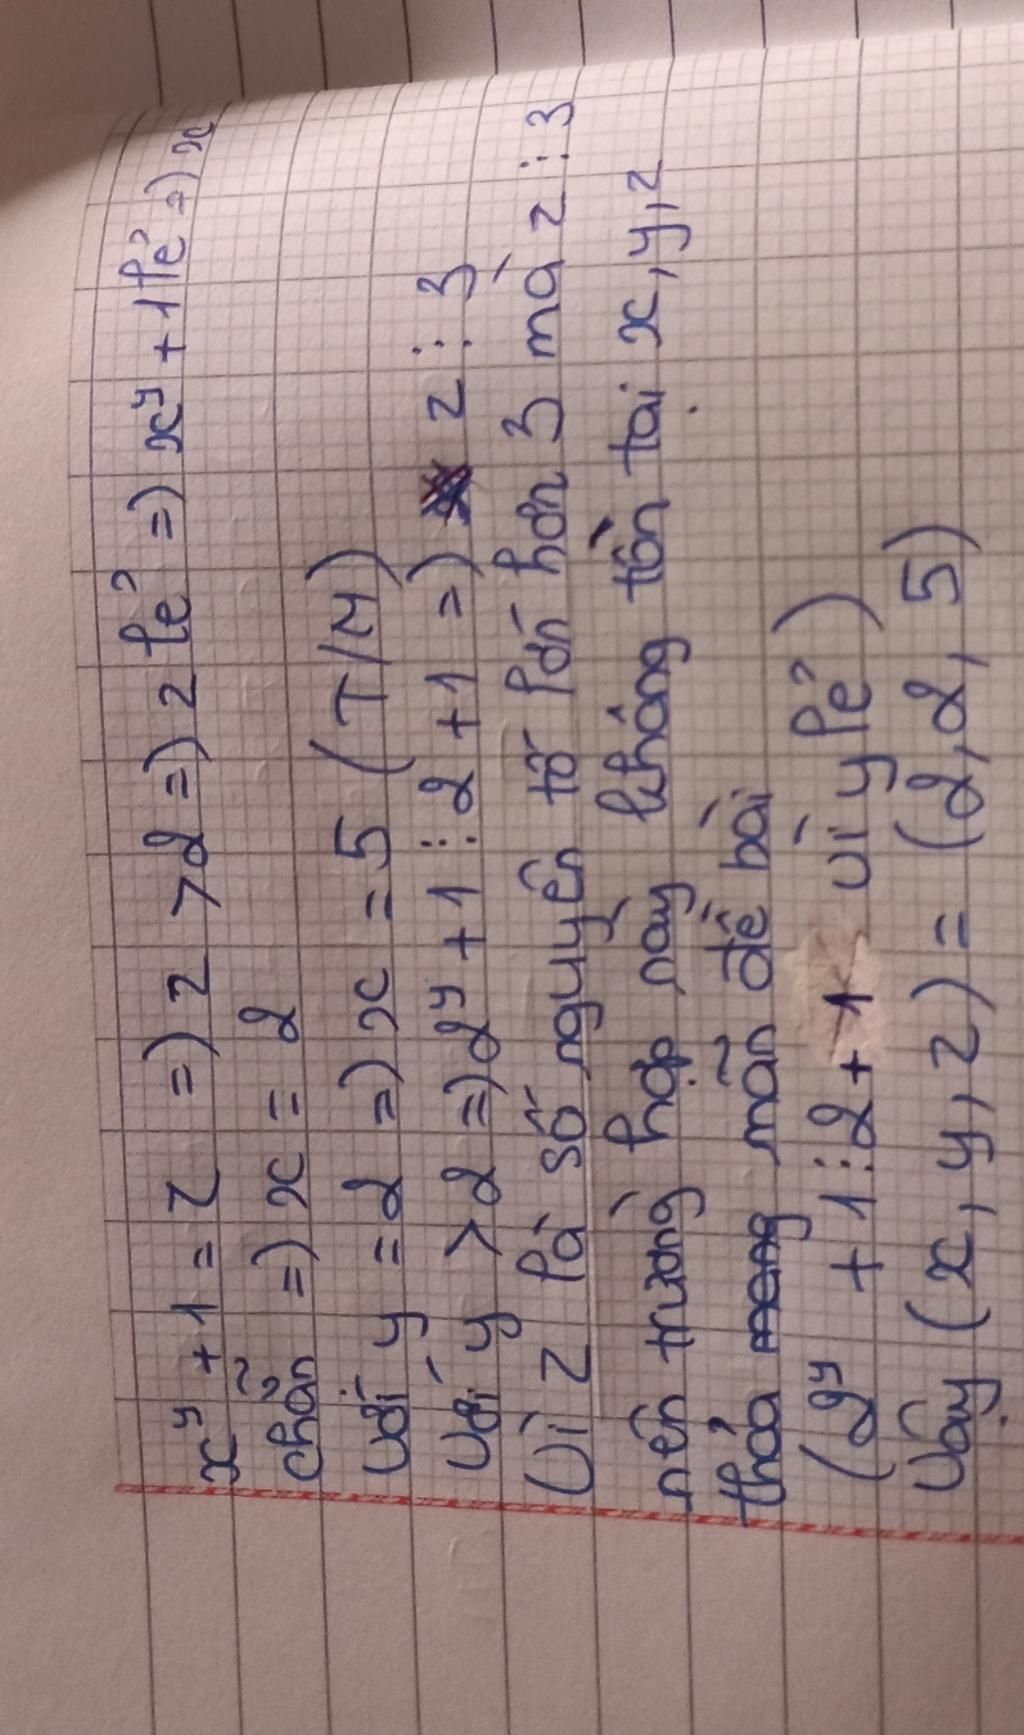 x^y + 1 = z => z > 2 => z lẻ => x^y + 1 lẻ => x
chẵn => x = 2
Với y = 2 => x = 5 (T/M)
Với y > 2 => 2^y + 1 ⋮ 2 + 1 => z ⋮ 3
Vì z là số nguyên tố lớn hơn 3 mà z ⋮ 3
nên trương hợp này không tồn tại x, y, z
thỏa mãn đề bài
(2^y + 1 ⋮ 2 + 1 vì y lẻ)
Vậy (x, y, z) = (2, 2, 5)